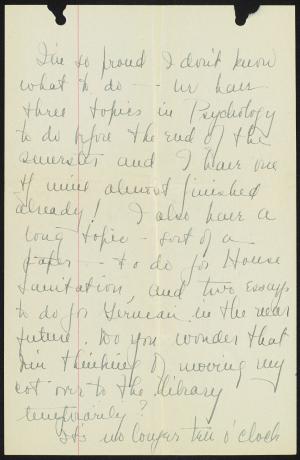 I'm so proud I don't know
what to do -- we have
three topics in Psychology
to do before the end of the
semester and I have one
of mine almost finished
already! I also have a
long topic - sort of a
paper - to do for House
Sanitation, and two essays
to do for German in the near
future. Do you wonder that
I'm thinking of moving my
cot over to the library
temporarily?
It's no longer ten o'clock